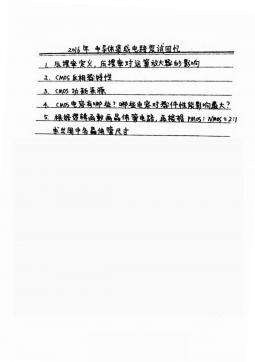 2016年 半导体集成电路复试回忆
1. 压摆率定义，压摆率对运算放大器的影响
2. CMOS反相器特性
3. CMOS功耗来源
4. CMOS电容有哪些？哪些电容对器件性能影响最大？
5. 根据逻辑函数画晶体管电路，并根据 PMOS：NMOS=2:1
求出图中各晶体管尺寸